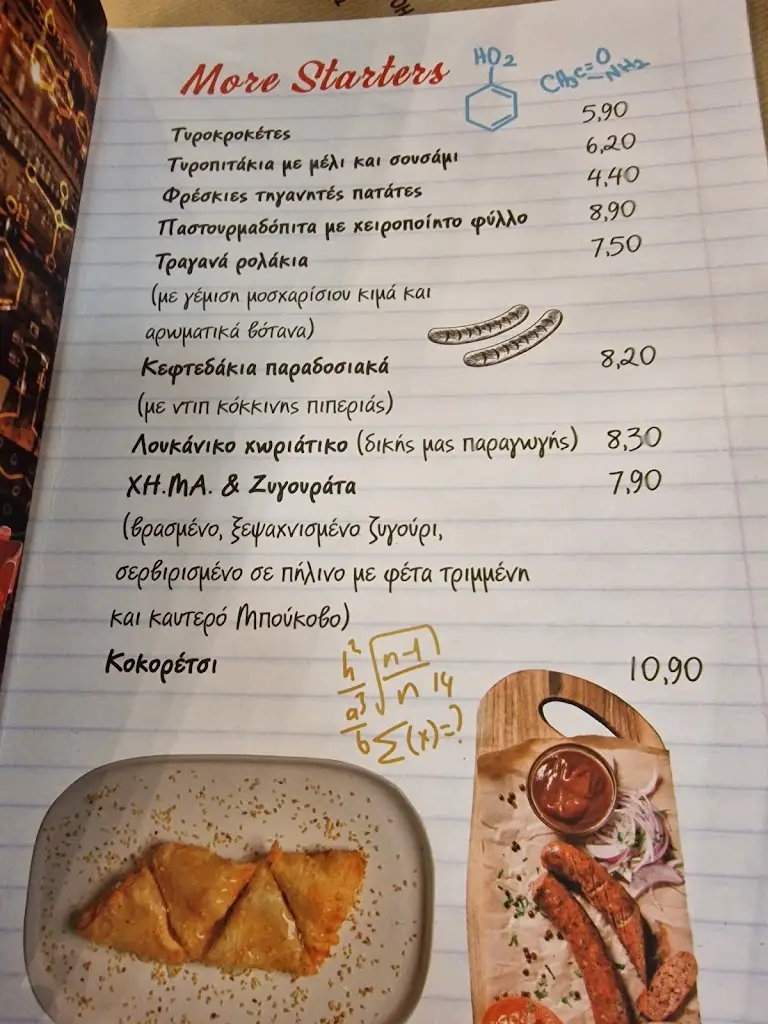 More Starters
HO2
CH3C=O
NH2
Τυροκροκέτες 5,90
Τυροπιτάκια με μέλι και σουσάμι 6,20
Φρέσκιες τηγανητές πατάτες 4,40
Παστουρμαδόπιτα με χειροποίητο φύλλο 8,90
Τραγανά ρολάκια 7,50
(με γέμιση μοσχαρίσιου κιμά και
αρωματικά βότανα)
Κεφτεδάκια παραδοσιακά 8,20
(με ντιπ κόκκινης πιπεριάς)
Λουκάνικο χωριάτικο (δικής μας παραγωγής) 8,30
ΧΗ.ΜΑ. & Ζυγουράτα 7,90
(βρασμένο, ξεψαχνισμένο ζυγούρι,
σερβιρισμένο σε πήλινο με φέτα τριμμένη
και καυτερό Μπούκοβο)
Κοκορέτσι 10,90
h² √n-1
a³ n 14
b Σ(x)=?